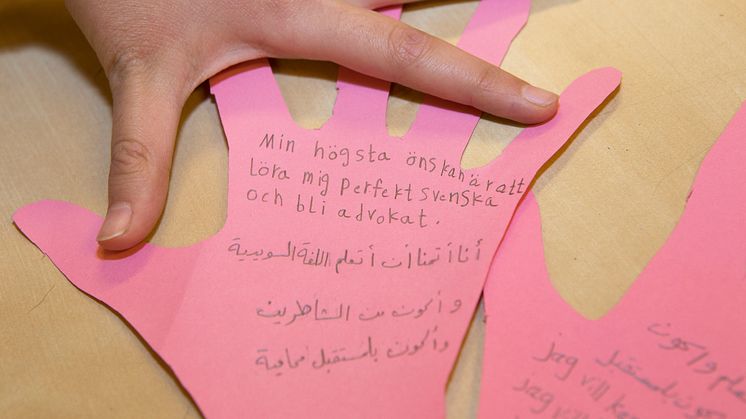 Min högsta önskan är att
löra mig perfekt svenska
och bli advokat.
أنا أتمنا أن أتعلم اللغة السويدية
و أكون من الشاطرين
وأكون بلمستقبل محامية
علم واكون
بلمستقبل
Jag vill
jag